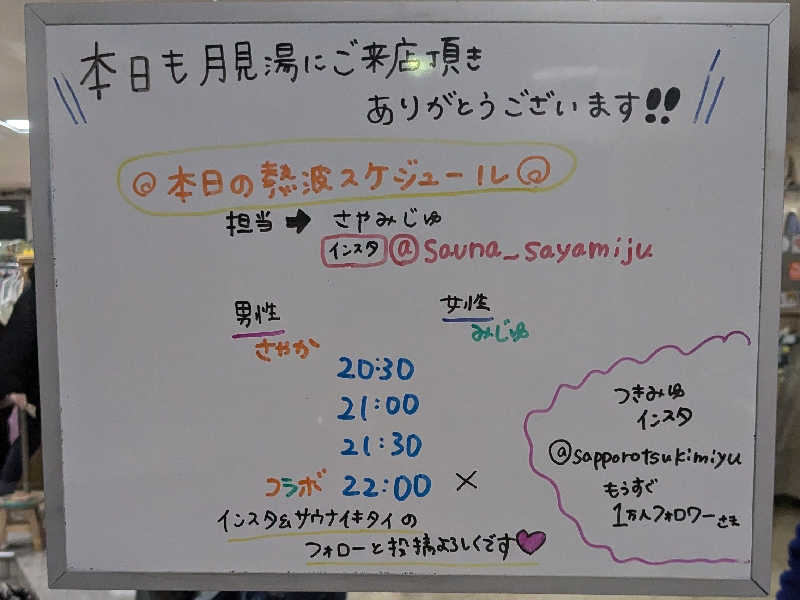 本日も月見湯にご来店頂き
ありがとうございます!!
本日の熱波スケジュール
担当 ➡ さやみじゅ
インスタ @sauna_sayamiju
男性 女性
さやか みじゅ
20:30
21:00
21:30
コラボ 22:00 ×
インスタ&サウナイキタイの
フォローと投稿よろしくです♥
つきみゆ
インスタ
@sapporotsukimiyu
もうすぐ
1万人フォロワーさま